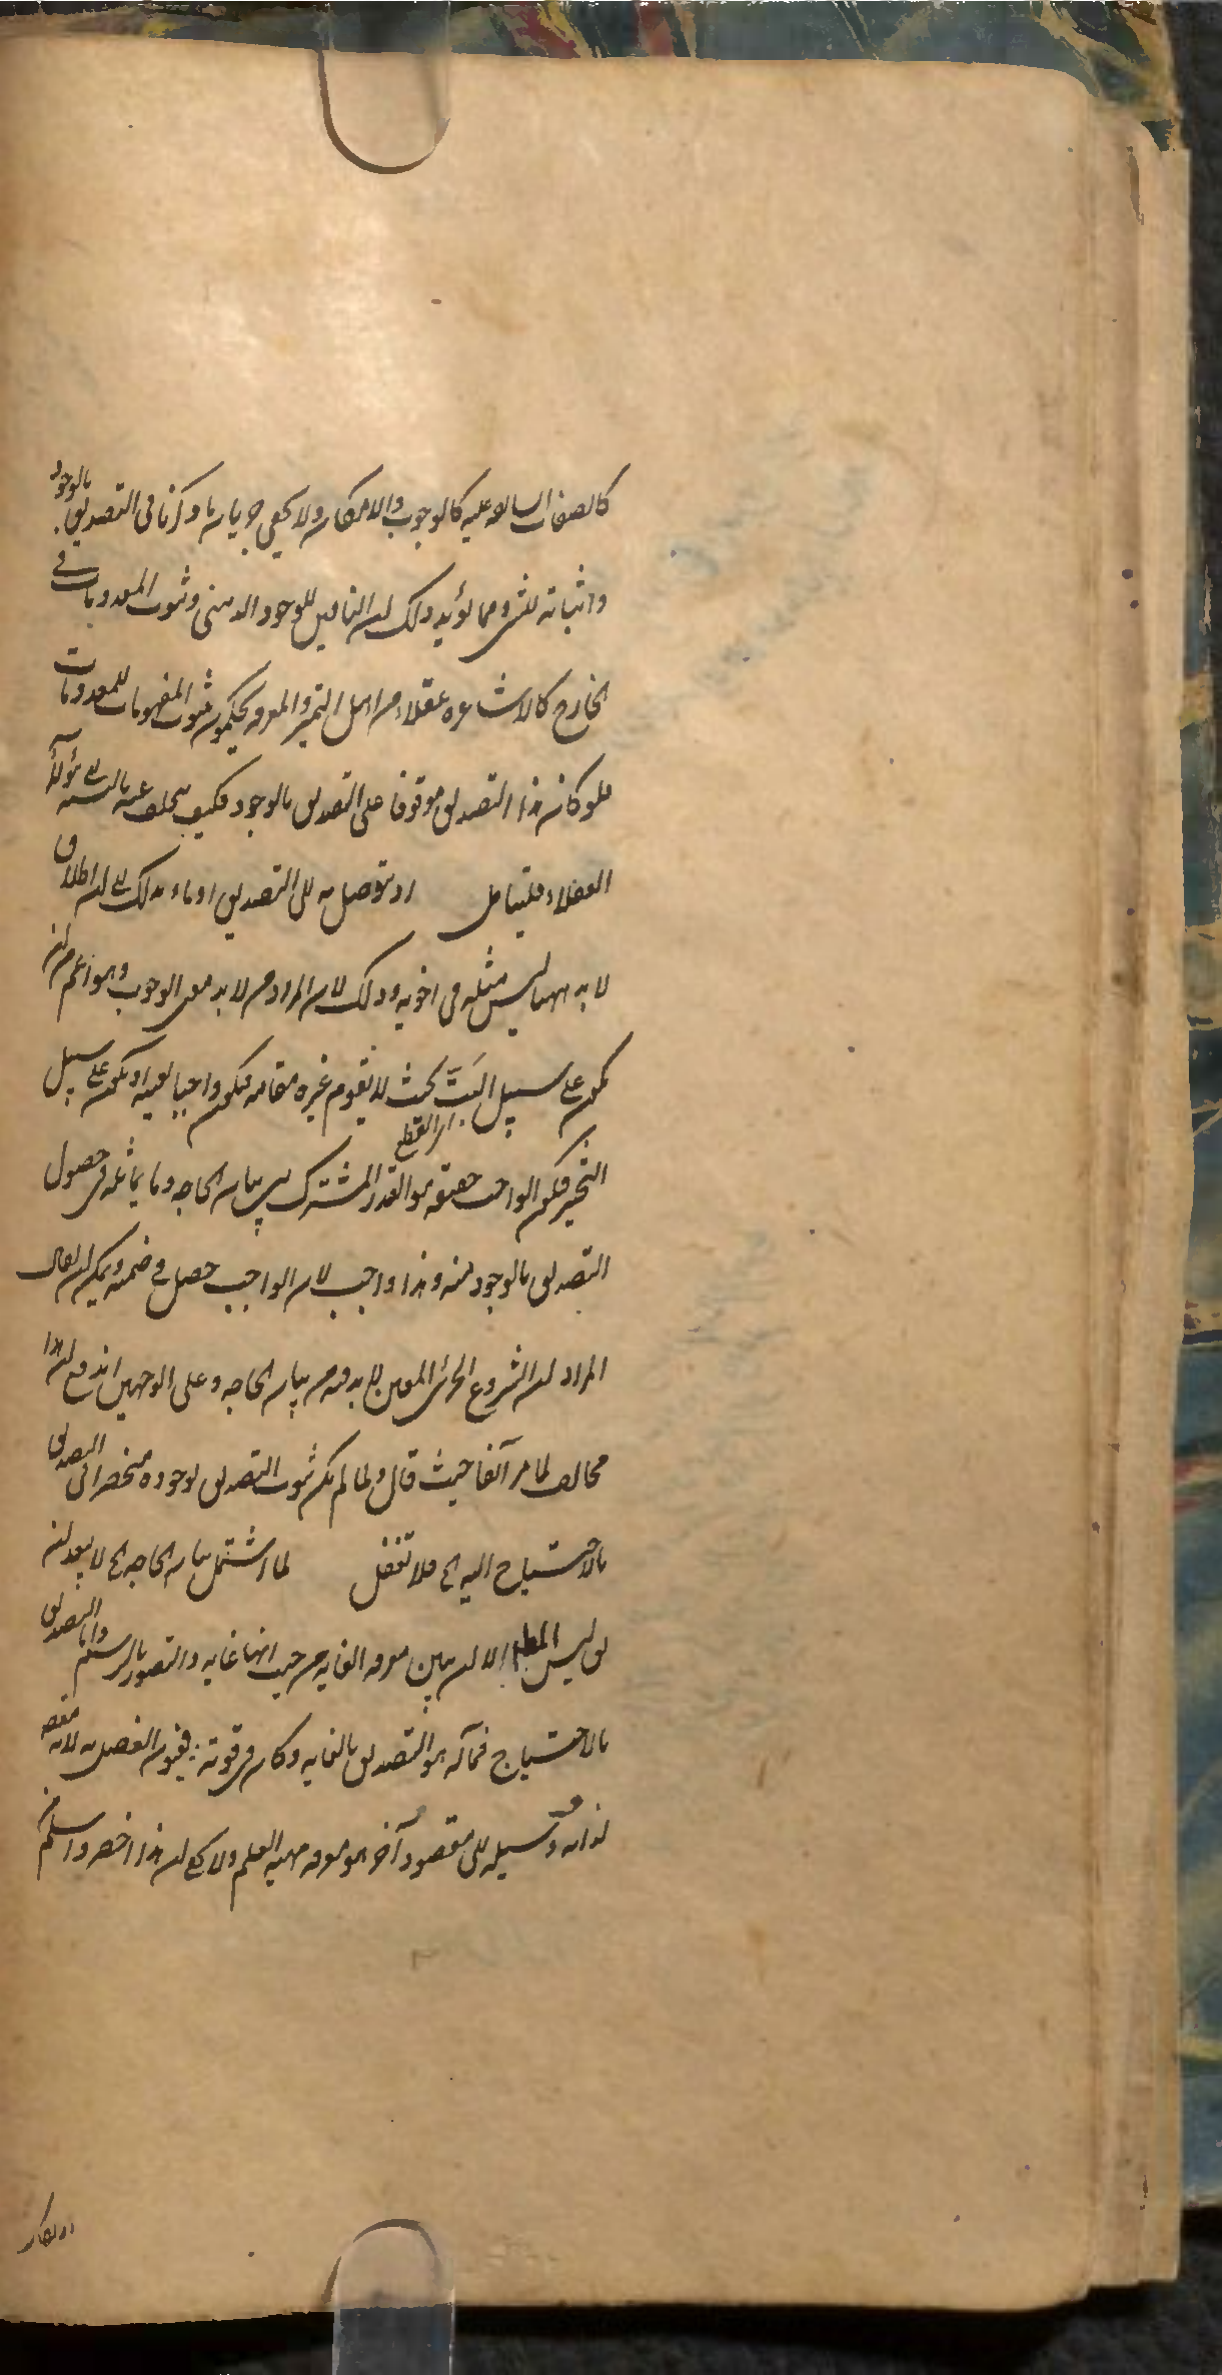 كالصفات السابقة عليه كالوجوب والامكان ولا يخفى جريان ما ذكرنا في التصديق بالوجود
واثباته للشيء ومما يؤيد ذلك ان النافين للوجود الذهني وثبوت المعدومات في
الخارج كالاشاعرة عقلاء من اهل التميز والمعرفة يحكمون بثبوت المفهومات للمعدومات
فلو كان هذا التصديق موقوفا على التصديق بالوجود فكيف يتخلف عنه بالنسبة الى هؤلاء
العقلاء فليتأمل او يتوصل به الى التصديق اه ايماء بذلك الى ان اطلاق
لا بد ههنا ليس مثله في اخويه وذلك لان المراد من لا بد معنى الوجوب وهو اعم من ان
يكون على سبيل البتّ بحيث لا يقوم غيره مقامه فيكون واجبا لعينه او يكون على سبيل
اى القطع
التخيير فيكون الواجب حقيقة هو القدر المشترك بين بيان الحاجة وما يماثله في حصول
التصديق بالوجود منه وهذا واجب لان الواجب حصل في ضمنه ويمكن ان يقال
المراد ان الشروع الجزئي المعين لا بد فيه من بيان الحاجة وعلى الوجهين اندفع ان هذا
مخالف لما مر آنفا حيث قال ولما لم يكن ثبوت التصديق بوجوده منحصرا في التصديق
بالاحتياج اليه الخ فلا تغفل لما اشتمل بيان الحاجة الخ لا يبعد ان
يق ليس المط الا ان يبين معرفة الغاية من حيث انها غاية والتصور بالرسم واما التصديق
بالاحتياج فمآله هو التصديق بالغاية وكان في قوته فيفوت الفصل به لانه مقصود
لذاته وسيلة الى مقصود آخر هو معرفة مهية العلم ولا يخفى ان هذا اخصر واسلم